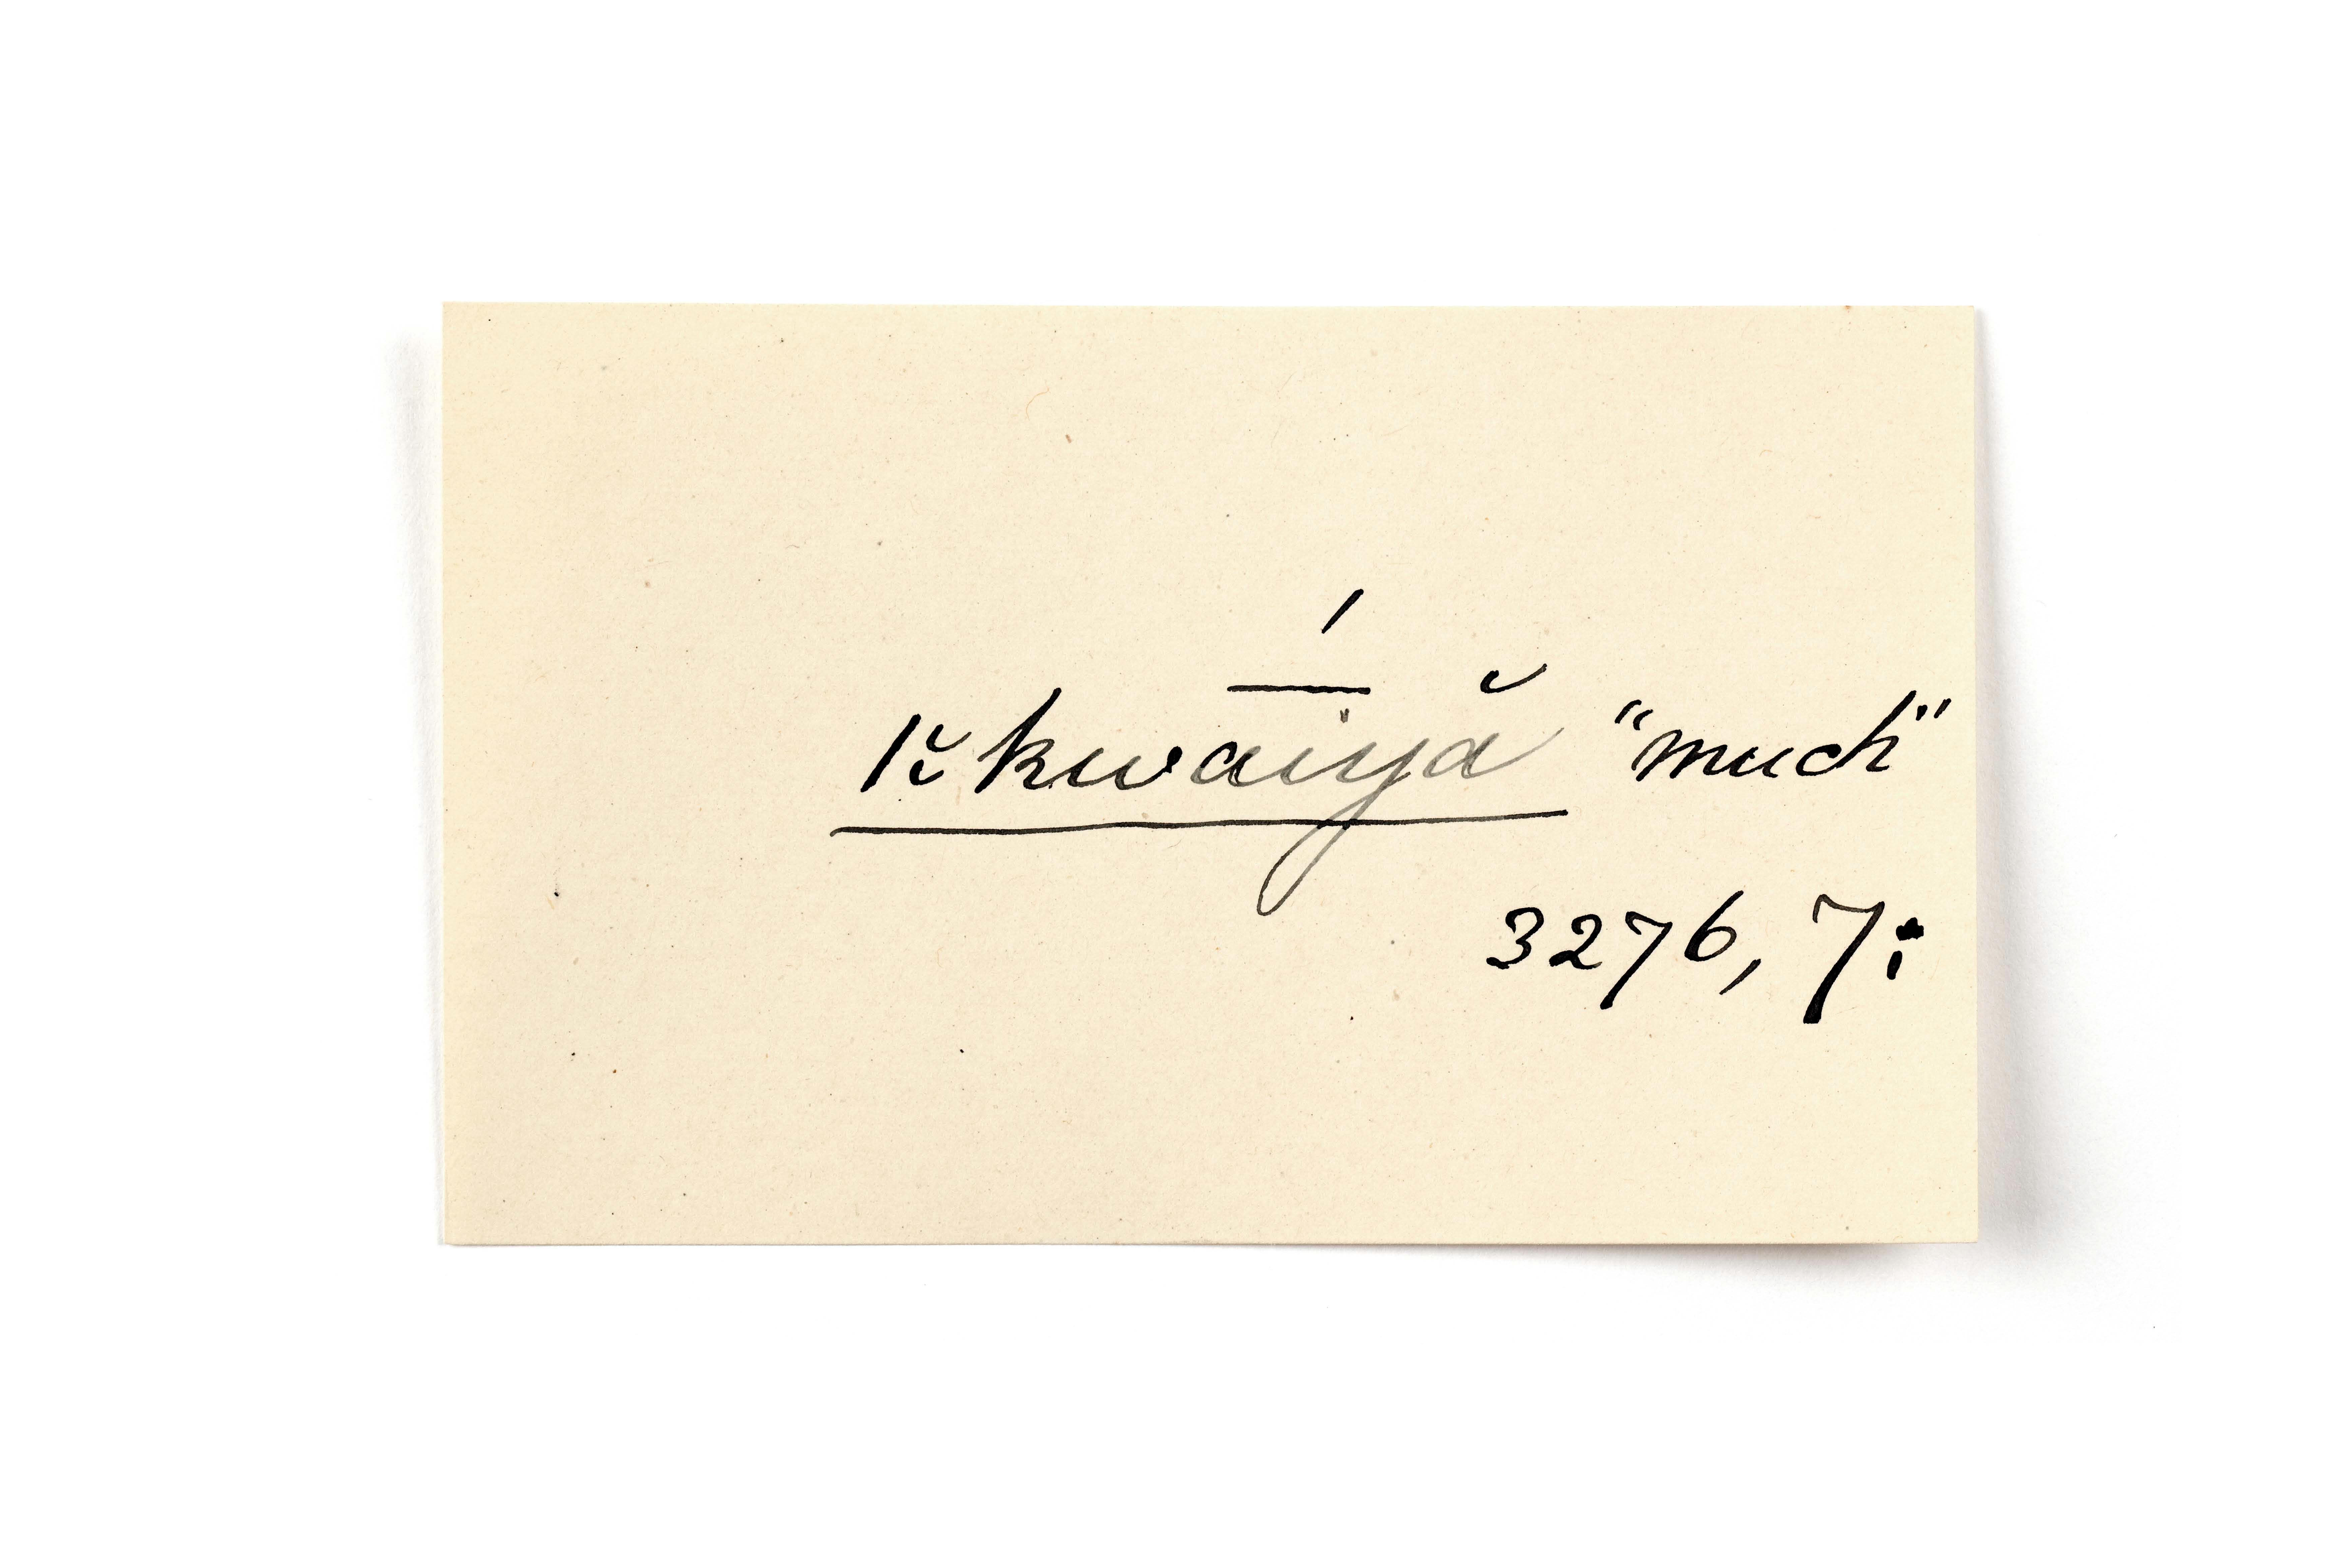 ĭkwā́iyă "much"
3276, 7: